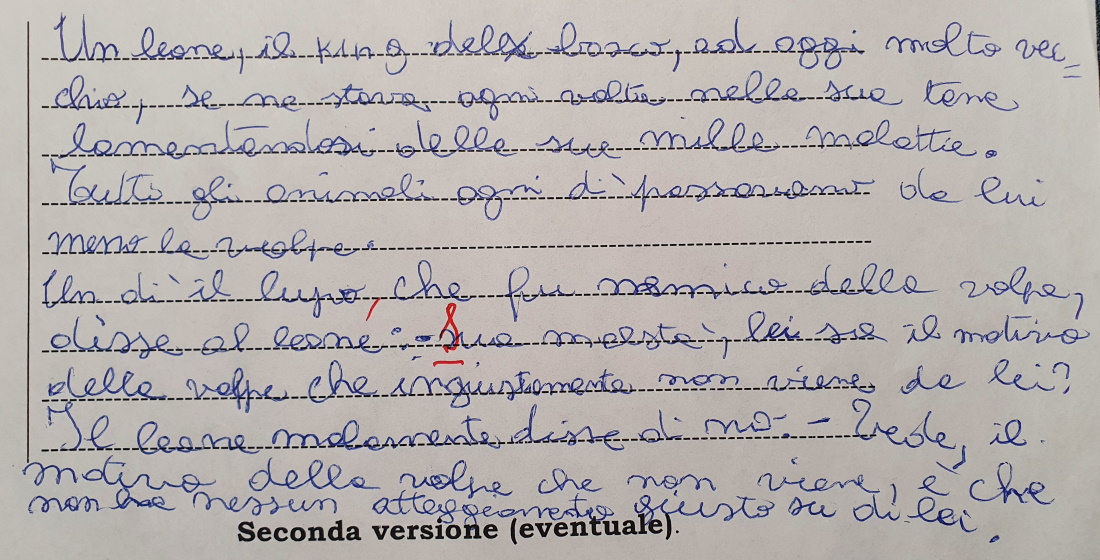 Un leone, il king della bosco, ad oggi molto vec=
chio, se ne stava ogni volta nella sua tana
lamentandosi delle sue mille malattie.
Tutto gli animali ogni dì passavano da lui
meno la volpe.
Un dì il lupo, che fu nemico della volpe,
disse al leone: - Sua maestà, lei sa il motivo
della volpe che ingiustamente non viene da lei?
Il leone malamente disse di no. - Vede, il
motivo della volpe che non viene, è che
non ha nessun atteggiamento giusto su di lei.
Seconda versione (eventuale).